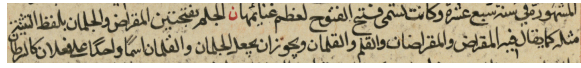 المشهورة وفي سنة سبع عشرة وكانت تسمى فتح الفتوح لعظم غنائمها ن الجلم بفتحتين المقراض والجلمان بلفظ التثنية
مثله كما يقال فيه المقراض والمقراضان والقلم والقلمان ويجوز ان يجعل الجلمان والقلمان اسما واحدا على فعلان كالسرطان